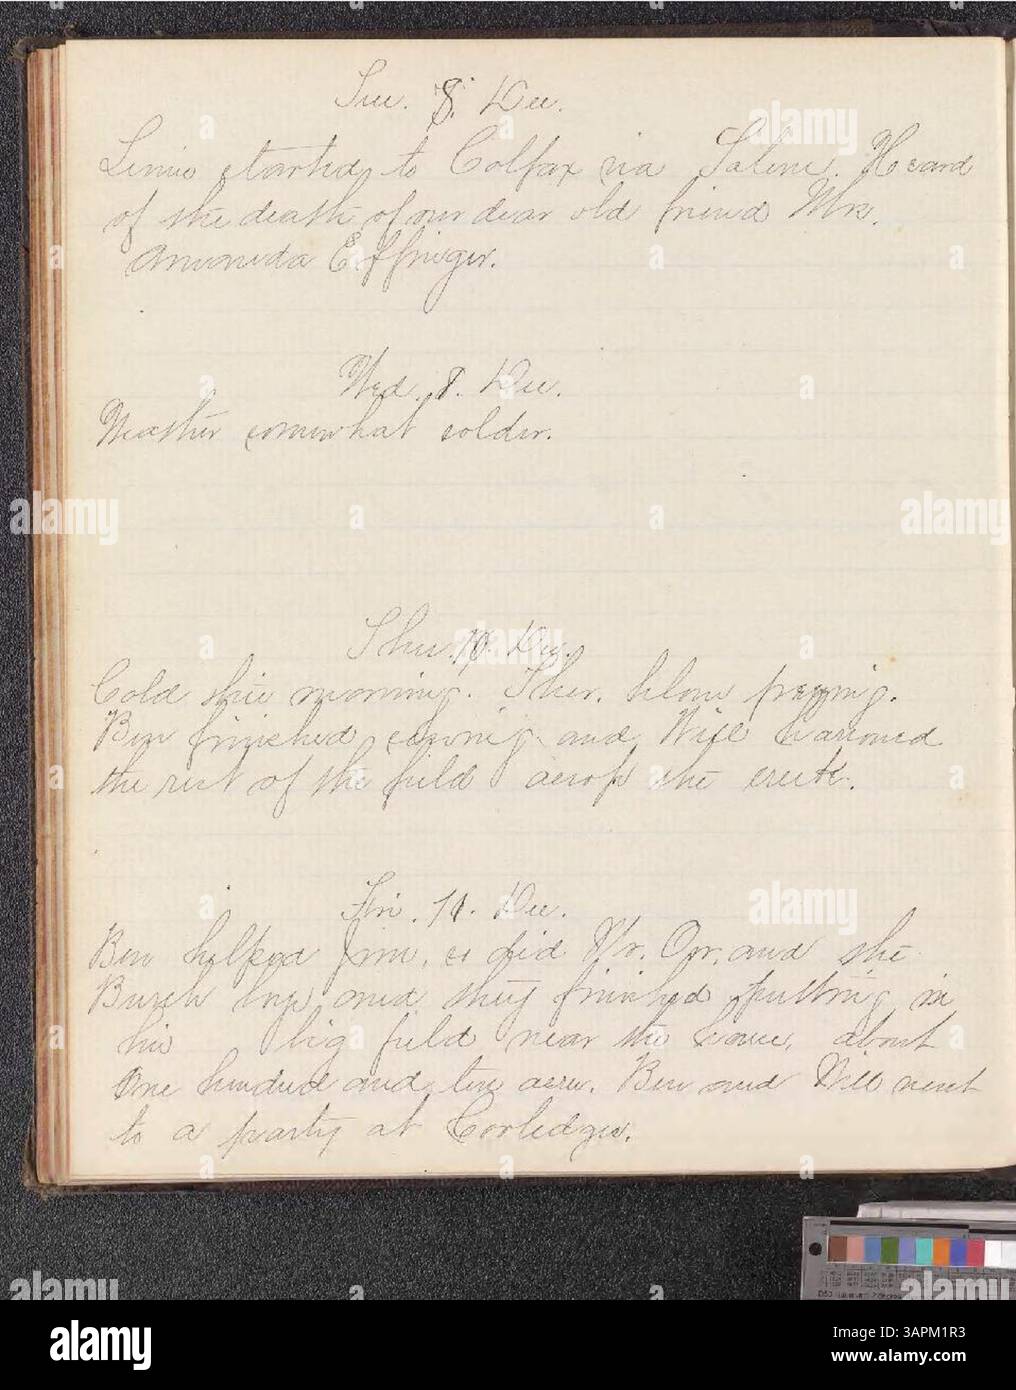 Tue. 8. Dec.
Linnie started to Colfax via Saline. Heard
of the death of our dear old friend Mrs.
Amanda Effinger.
Wed. 9. Dec.
Weather somewhat colder.
Thur. 10. Dec.
Cold this morning. Ther. below freezing.
Ben finished sowing and Will harrowed
the rest of the field across the creek.
Fri. 11. Dec.
Ben helped Jim, so did Mr. Orr, and the
Burch boys, and they finished putting in
his big field near the house, about
One hundred and ten acres. Ben and Will went
to a party at
alamy
Image ID: 3APM1R3
www.alamy.com